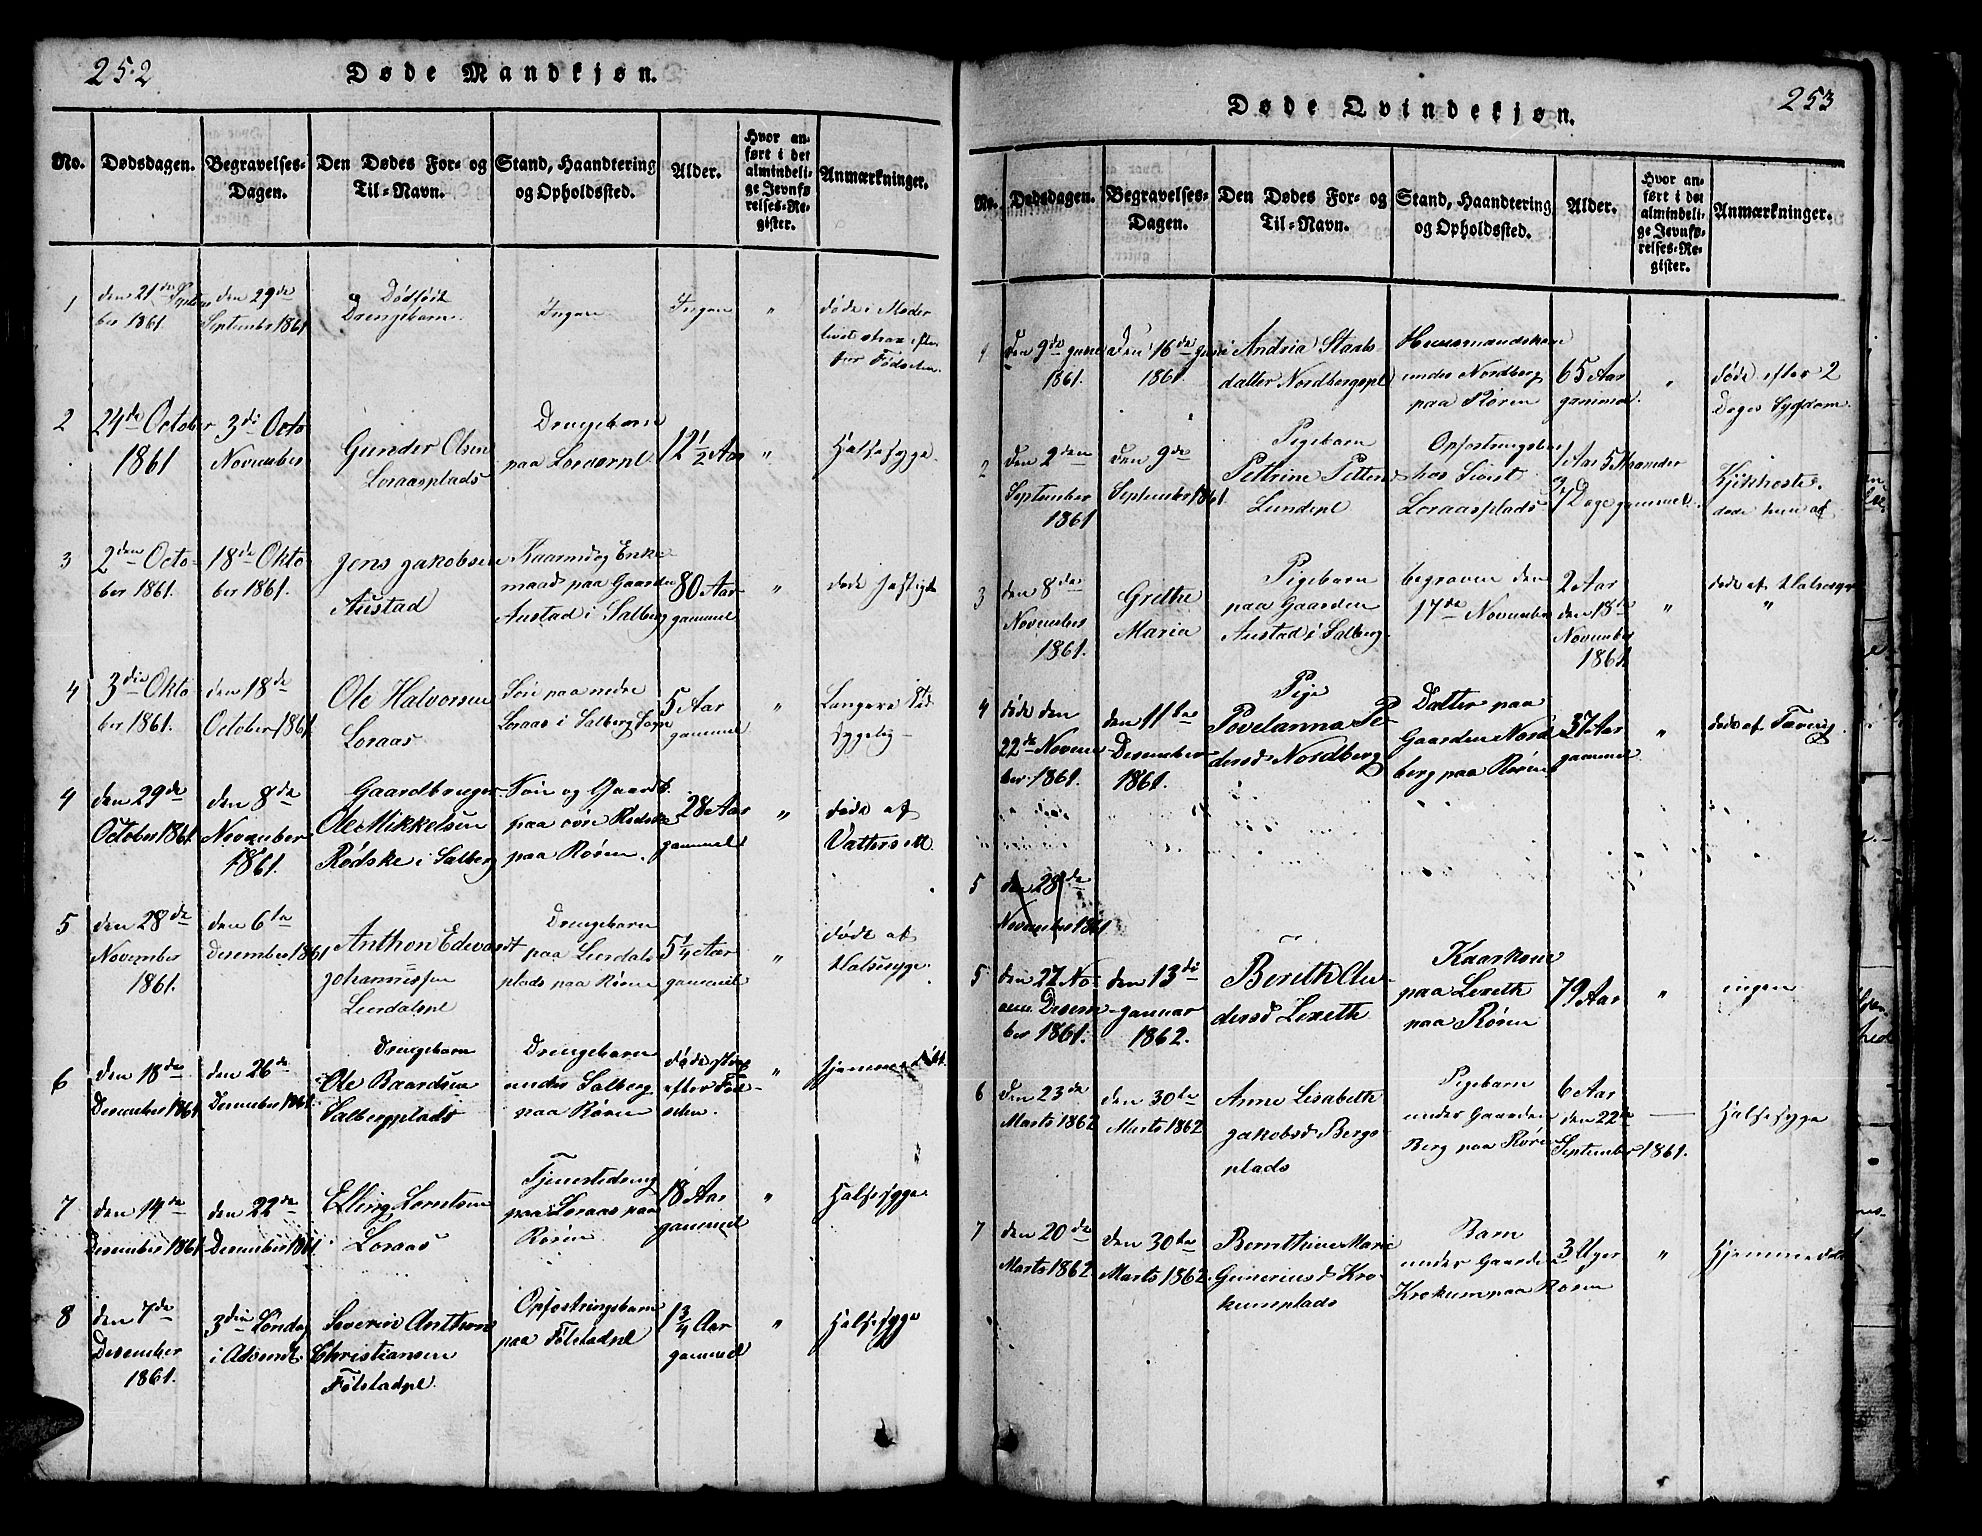 252
Døde Mandkjøn.
No.
Dødsdagen.
Begravelses-
Dagen.
Den Dødes For- og
Til-Navn.
Stand, Haandtering
og Opholdssted.
Alder.
Hvor an-
ført i det
almindeli-
ge Jevnfø-
relses-Re-
gister.
Anmærkninger.
1
den 21de Septem
ber 1861.
den 29de
September 1861
Dødfødt
Drengebarn
Ingen
Ingen
"
døde i Moder
livet strax efter
før Fødselen.
2
24de October
1861
3die Octo
November
Gunder Olsen
Loraasplads
Drengebarn
paa Loraaspl.
12 1/2 Aar
"
Halsesyge.
3
2den Octo-
ber 1861.
18de Okto
ber 1861.
Jens Jakobsen
Austad
Kaarm og Enke
mand paa Gaarden
Austad i Salberg
80 Aar
gammel
"
døde hastigt
4
3die Okto
ber 1861.
den 18de
October 1861
Ole Halvorsen
Loraas
Søn paa nedre
Loraas i Salberg Sogn
5 Aar
gammel
"
Længere Tid
sygelig
4
den 29de
October 1861
den 8de
November
1861.
Gaardbruger
Ole Mikkelsen
Rødske i Salberg
Søn og Gaardb.
paa øvre Rødske
paa Røren.
28 Aar
gammel
"
døde af
Vattersott
5
den 28de
November
1861.
den 6te
Desember 1861
Anthon Edvardt
Johannissen
Leerdalspl
Drengebarn
paa Leerdals
plads paa Røren
5 1/4 Aar
gammel
"
døde af
Halsesyge.
6
den 18de
Desember 1861
den 26de
Desember 1861.
Drengebarn
Ole Baardsen
Salbergplads
Drengebarn
under Salberg
paa Røren
døde strax
efter Fød-
selen.
"
hjemmedøbt
7
den 14de
Desember 1861
den 22de
Desember 1861
Elling Lorntsen
Loraas
Tjenestedreng
paa Loraas paa
Røren
18 Aar
gammel
"
Halsesyge
8
den 7de
Desember
1861.
3die Søndag
i Advendt
Severin Anthon
Christiansen
Følstadpl.
Opfostringsbarn
paa Følstadpl
1 3/4 Aar
gammel
"
Halsesyge
253
Døde Qvindekjøn.
No.
Dødsdagen.
Begravelses-
Dagen.
Den Dødes For- og
Til-Navn.
Stand, Haandtering
og Opholdssted.
Alder.
Hvor an-
ført i det
almindeli-
ge Jevnfø-
relses-Re-
gister.
Anmærkninger.
1
Den 9de Juni
1861.
Den 16de Juni
1861
Andria Staals-
datter Nordbergspl
Huusmandskone
under Nordberg
paa Røren
65 Aar
gammel.
"
døde efter 2
Dages Sygdom.
2
den 2den
September
1861
den 9de
September 1861.
Pigebarn
Pettrine Petters
Lundspl
Opfostringsbarn
hos Sivert
Loraasplads
1 Aar 5 Maaneder
og
7 Dage gammel
Kjikhoste
døde hun af
3
den 8de
November
1861.
Grethe
Maria
Pigebarn
paa Gaarden
Austad i Salberg
begraven den
17de November
2 Aar
den 18de
November
1861
"
døde af Halsesyge
"
4
døde den
22de Novem
ber 1861.
den 11te
Desember
1861.
Pige
Povelanna Pe-
dersd Nordberg
Datter paa
Gaarden Nord
berg paa Røren
37 Aar
gammel
"
døde af Tæring
5
den 28de
November 1861
5
den 27 No-
Desem-
ber 1861.
den 13de
Januar
1862.
Bereth An-
dersd Lexeth
Kaarkone
paa Lexeth
paa Røren
79 Aar
"
ingen
6
Den 23de
Marts 1862
den 30te
Marts 1862
Anne Lisabeth
Jakobsd Bergs-
plads
Pigebarn
under Gaarden
Berg paa Røren
6 Aar
den 22de
September 1861.
Halsesyge
7
den 20de
Marts 1862
den 30te
Marts 1862.
Bernthine Marie
Guneriusd Kro-
kumplads
Barn
under Gaarden
Krokum paa Røren
3 Uger
"
Hjemmedøbt